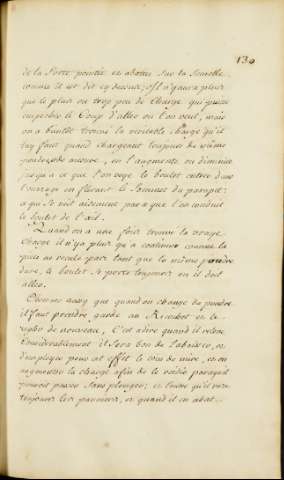 130
de la sorte pointée et abatue sur la semelle
comme il est dit cy dessus; il n'y aura plus
que le plus ou trop peu de charge qui puisse
empescher le Coup d'aller ou l'on veut, mais
on a bientôt trouvé la veritable charge qu'il
luy faut quand chargeant toujours de même
poudre, on l'augmente ou diminue
jusqu'a ce que l'on voye le boulet entrer dans
l'ouvrage en effleurant le sommet du parapet:
ce qui se voit aisement parce que l'on conduit
le boulet de l'œil.
Quand on a une fois trouvé la vraye
charge il n'y a plus qu'a continuer comme la
piece ne recule pas; tant que la même poudre
dure, le boulet se porte toujours ou il doit
aller.
aussy que quand on change de poudre
il faut prendre garde au Ricochet et le
regler de nouveau, C'est a dire quand il releve
Considerablement il sera bon de l'abaisser, et
d'employer pour cet effet le coin de mire, et en
augmenter la charge afin de le
pouvoir passer sans plonger; et lorsqu'il
toujours les premiers, et quand il en abat